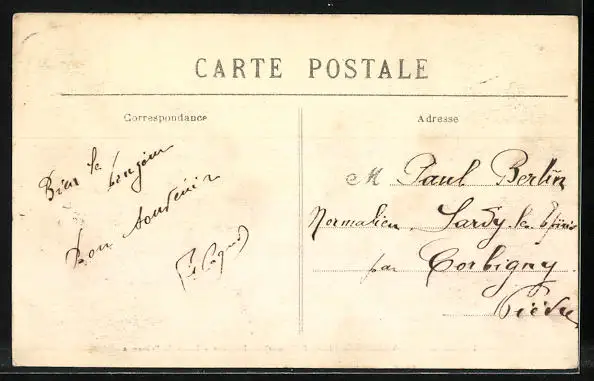 CARTE POSTALE
Correspondance
Adresse
Bien le bonjour
Bon souvenir
M Paul Berlin
Normalien, Sardy-les-Epiris
par Corbigny
Nièvre